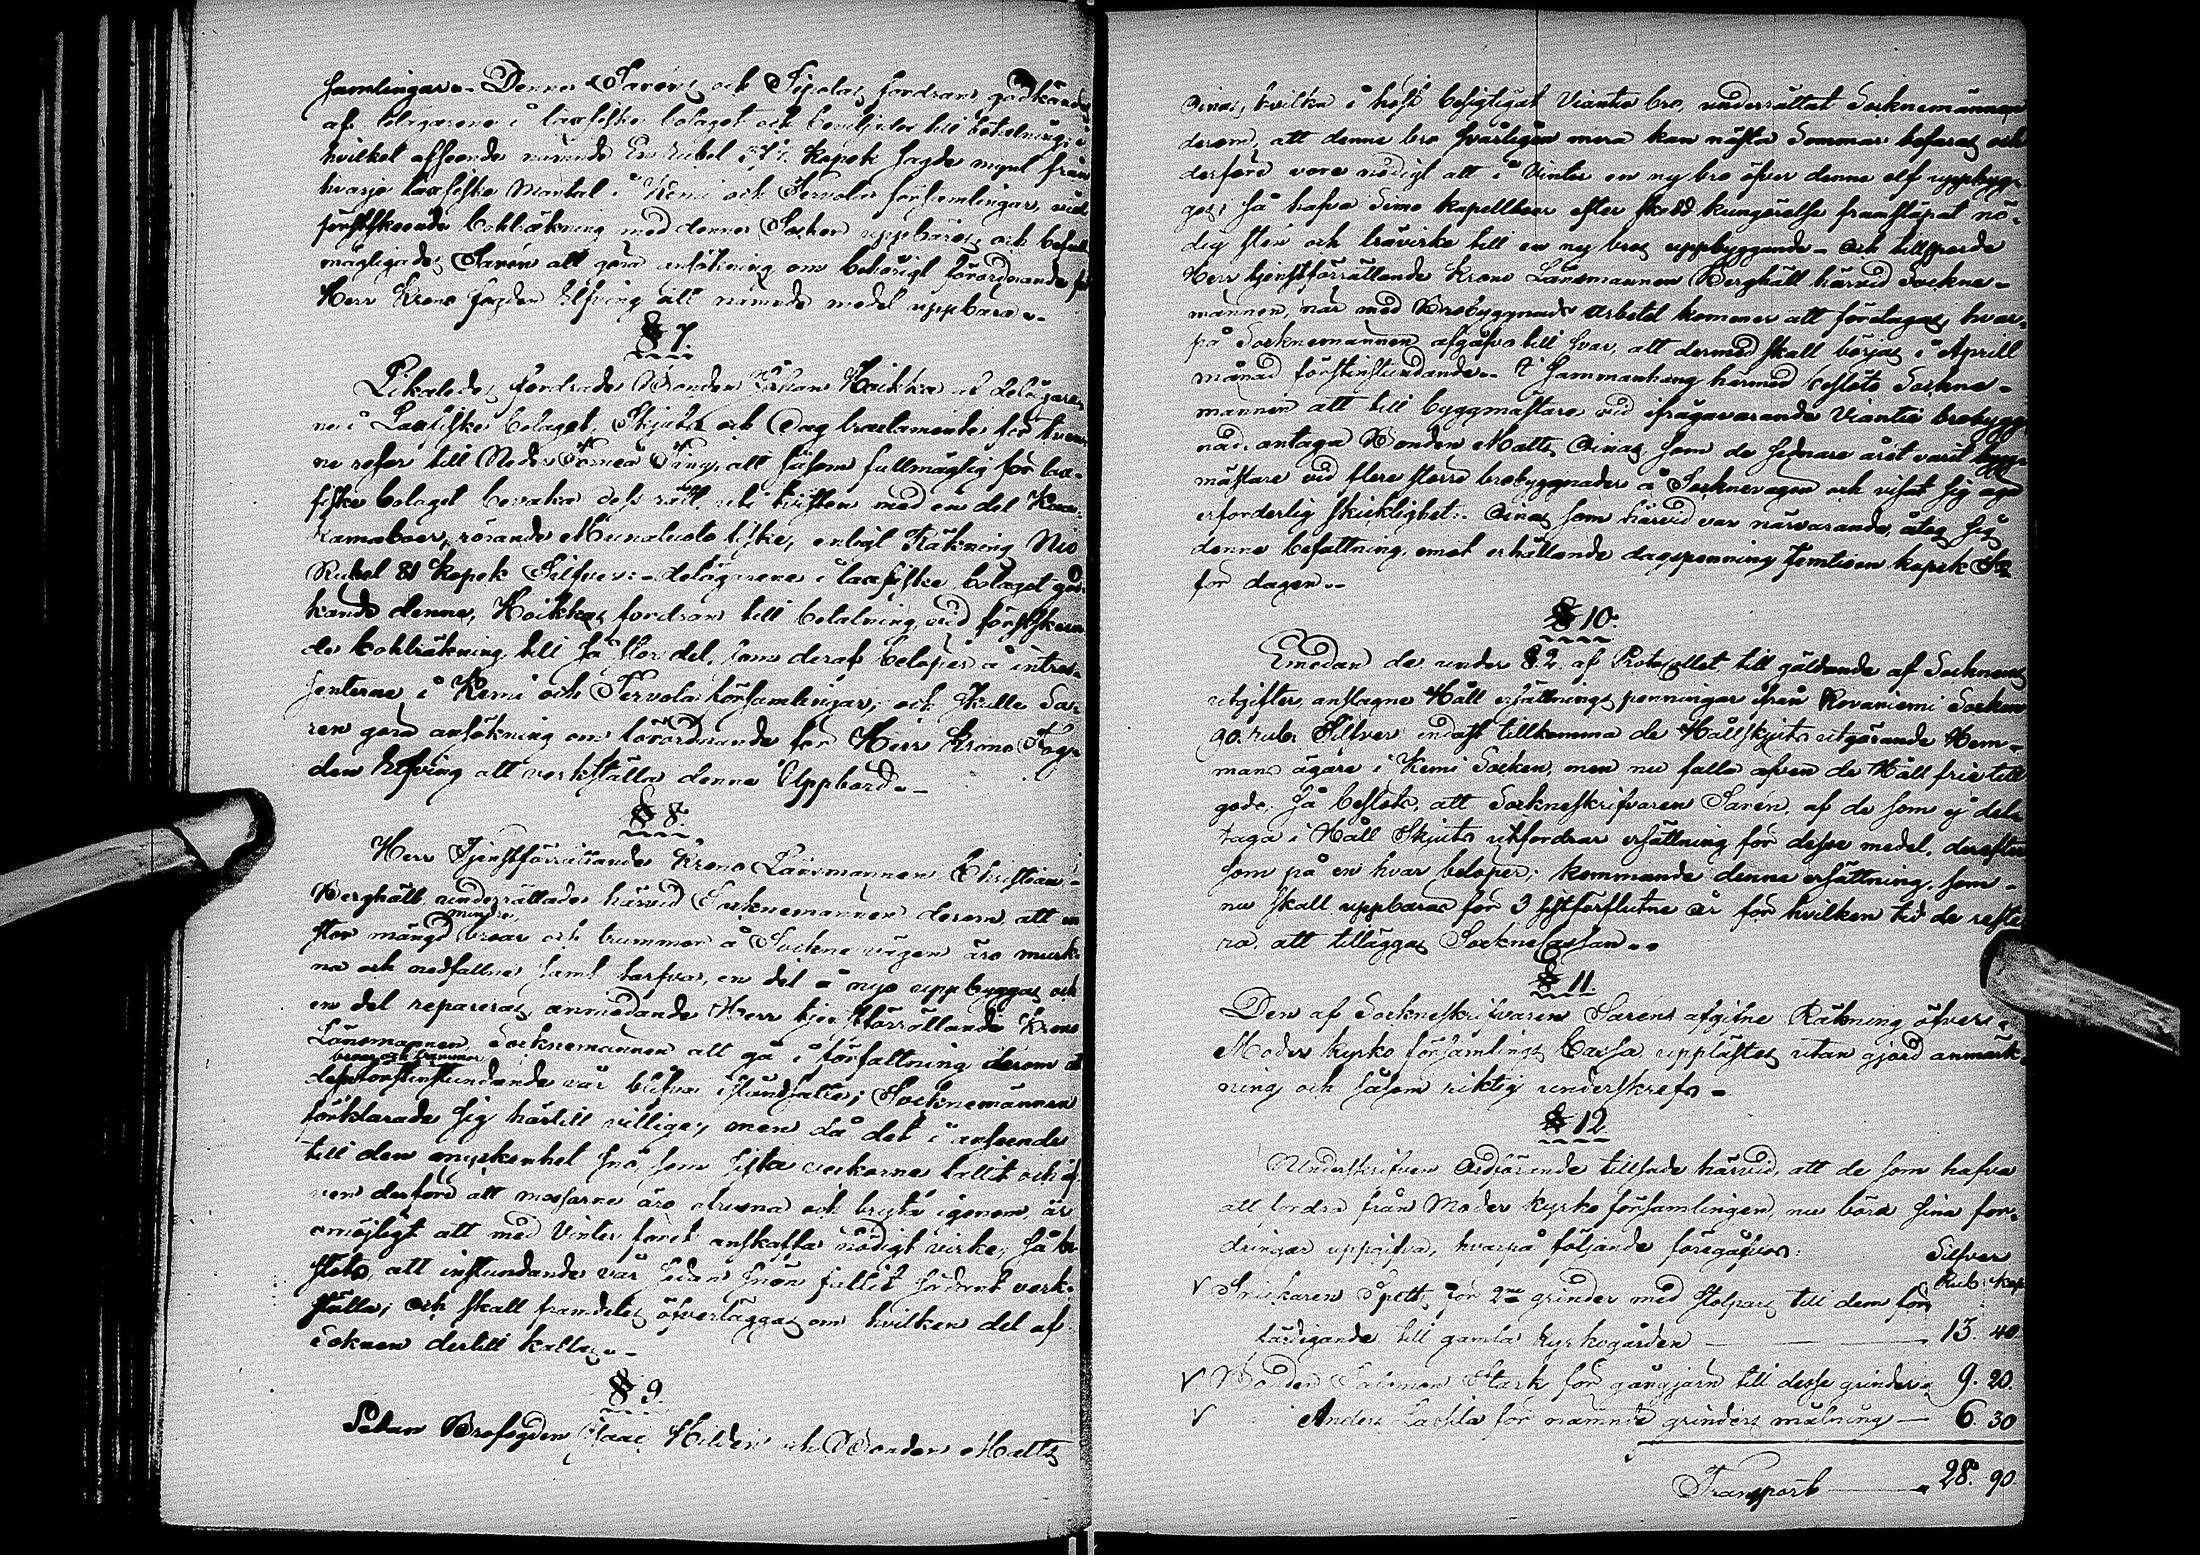 samlingar.- Denne Saréns och Sipolas fordran godkändes
af delägarene i laxfiske bolaget och beviljades till betalning, i
hvilket afseende nämnde En rubel 57½ kopek sagde mynt från
hvarje laxfiske Mantal i Kemi och Tervola församlingar, vid
förstskeende bokräkning med denne Socken uppbäres och befull-
mägtigades Sarén att göra ansökning om behörigt förordnande för
Herr Krono fogden Elfving att nämnde medel uppbära.-
§ 7.
Likaledes fordrade Bonden Johan Hoikka af delägare-
ne i Laxfiske bolaget, Skjuts och Dag tractamente för tven-
ne resor till Neder Torneå Ting, att såsom fullmägtig för lax-
fiske bolaget bevaka dess rätt uti tvisten med en del
ramaboer, rörande Munaluoto fiske, enligt Räkning Nio
Rubel 81 kopek Silfver:- delägarene i laxfiske bolaget god-
kände denne, Hoikkas fordran till betalning, vid förstskeen-
de bokräkning till så stor del, som deraf belöper å intres-
senterne i Kemi och Tervola församlingar, och skulle Sa-
rén göra ansökning om förordnande för Herr Krono Fog-
den Elfving att verkställa denne Uppbörd.-
§ 8.
Herr Tjenstförrättande Krono Länsmannen Christian
Berghäll underrättade härvid Socknemännen derom, att en
stor mängd mindre broar och trummor å Sockne vägen äro murk-
na och nedfallne samt tarfva, en del å nyo uppbyggas och
en del repareras, anmodande Herr tjenstförrättande Krono
Länsmannen Socknemännen att gå i författning derom att
desse broar och trummor förstinstundande vår blifva iståndsatte; Socknemännen
förklarade sig härtill villige, men då det i anseende
till den myckenhet snö, som sista veckorne fallit och äf-
ven derföre att mossarne äro ofrusna och brista igenom, är
omöjligt att med Vinter föret anskaffa nödigt virke, så be-
slöts, att instundande vår sedan snön fallit sådant verk-
ställa; och skall framdeles öfverläggas om hvilken del af
Soknen dertill kallas.-
§ 9.
Sedan Brofogden Isaac Hilden och Bonden Matts
Oinas, hvilka i höst besigtigat Viantie bro, underrättat Socknemännen
derom, att denne bro svårligen mera kan nästa Sommar befaras och
derföre vore nödigt att i Vinter en ny bro öfver denne elf uppbyg-
ges; så hafva Simo kapellboer efter skedd kungörelse framsläpat nö-
dig sten och trävirke till en ny bros uppbyggande - och tillsporde
Herr tjenstförrättande Krono Länsmannen Berghäll härvid Sockne-
männen, när med Brobyggnads arbetet kommer att företagas, hvar-
på Socknemännen afgåfvo till svar, att dermed skall börjas i Aprill
månad förstinstundande.- I sammanhang härmed beslöto Sockne-
männen att till byggmästare vid ifrågavarande Viantie brobygg-
nad antaga Bonden Matts Oinas som de sednare åren varit bygg-
mästare vid flere större brobyggnader å Socknevägen och visat sig äga
erforderlig skicklighet:. Oinas som härvid var närvarande, åtog sig
denne befattning emot erhållande dagspenning femtioen kopek Sr
för dagen.-
§ 10.
Emedan de under §. 2. af Protocollet till gäldande af Socknens
utgifter, anslagne Håll ersättnings penningar ifrån Rovaniemi Socken
90. rub. Silfver endast tillkomma de Hållskjuts utgörande Hem-
mans ägare i Kemi Socken, men nu falla äfven de Håll frie till
godo. så beslöts, att Sockneskrifvaren Sarén, af de som ej del-
taga i Håll Skjuts utfordrar ersättning för desse medel, derefter
som på en hvar belöper; kommande denne ersättning, som
nu skall uppbäras för 3 sistförflutne år för hvilken tid de reste-
ra, att tilläggas SockneCassan.-
§ 11.
Den af Sockneskrifvaren Sarén afgifne Räkning öfver
Moder kyrko församlings Cassa upplästes utan gjord anmärk-
ning och såsom riktig underskrefs.-
§ 12.
Underskrifven Ordförande tillsade härvid, att de som hafva
att fordra från Moder kyrko församlingen, nu böra sina for-
dringar uppgifva, hvarpå följande föregåfvos:
Silfver
Rub. Kop.
V Snickaren Spett, för 2ne grinder med stolpar till dem för
färdigande till gamla kyrkogården — 13. 40.
V Bonden Salomon Stark för gångjärn till desse grinder 9. 20.
V Anders Lassila för nämnde grinders målning — 6. 30
Transport — 28. 90